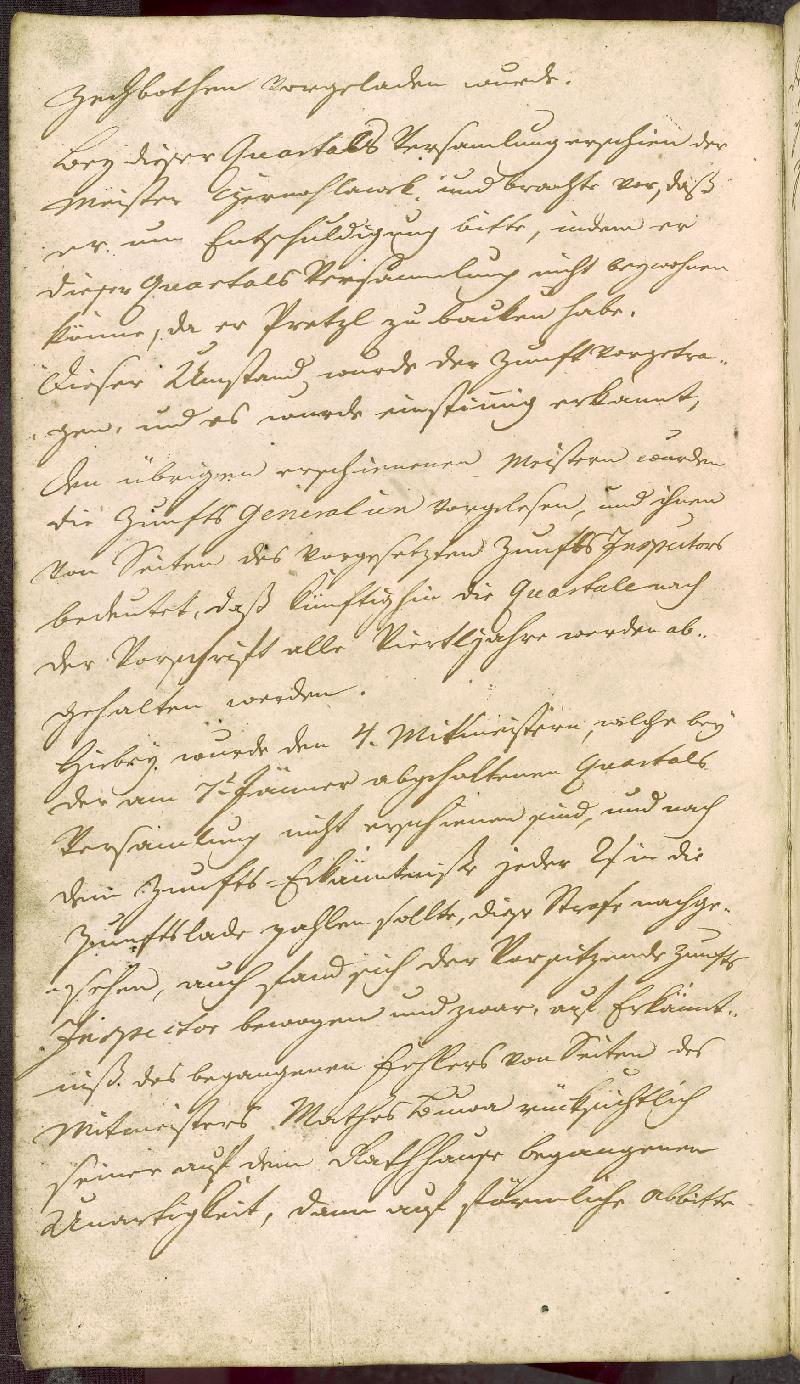 Zechbothen vorgeladen wurde.
Bey dieser Quartals Versamlung erschien der
Meister und brachte vor, daß
er um Entschuldigung bitte, indem er
dieser Quartals Versammlung nicht beywohnen
könne, da er Pretzl zu backen habe.
Dieser Umstand wurde der Zunft vorgetra¬
gen, und es wurde einstimig erkannt,
den übrigen erschienenen Meistern wurden
die Zunfts Generalien vorgelesen, und ihnen
von Seiten des vorgesetzten Zunfts Inspectors
bedeutet, daß künftighin die Quartale nach
der Vorschrift alle Viertljahre werden ab¬
gehalten werden.
Hiebey wurde den 4. Mitmeistern, welche bey
der am 7t Jänner abgehaltenen Quartals
Versamlung nicht erschienen sind, und nach
dem Zunfts-Erkänntniße jeder in die
Zunftslade zahlen sollte, diese Strafe nachge¬
sehen, auch fand sich der Vorsitzende Zunfts
Inspector bewogen und zwar, auf Erkännt¬
niß des begangenen Fehlers von Seiten des
Mitmeisters Mathes rücksichtlich
seiner auf dem Rathhause begangenen
Unartigkeit, dann auf förmliche Abbitte